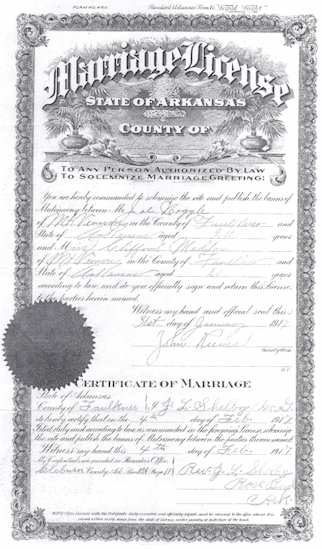 FORM NO.
Marriage License
STATE OF ARKANSAS
COUNTY OF
TO ANY PERSON AUTHORIZED BY LAW
TO SOLEMNIZE MARRIAGE, GREETING:
You are hereby commanded to solemnize the rite and publish the banns of
Matrimony between Mr.
of Mt Vernon in the County of Faulkner and
State of Arkansas aged years
and M
of Mt Vernon in the County of Faulkner
State of Arkansas aged 21 years
according to law, and do you officially sign and return this license,
to the parties herein named.
Witness my hand and official seal this
31st day of January 1917
John Reeves
County Clerk
D.C.
CERTIFICATE OF MARRIAGE
State of Arkansas
County of Faulkner I, J. L. Shelby
do hereby certify that on the 4 day of Feb. 1917
I did, duly and according to law, as commanded in the foregoing License, solemnize
the rite and publish the banns of Matrimony between the parties therein named
Witness my hand this 4th day of Feb. 1917
My Credentials are recorded in Recorder's Office
Cleburn County, Ark. Book Page
Rev. J. L. Shelby
Rose Bud
Ark.